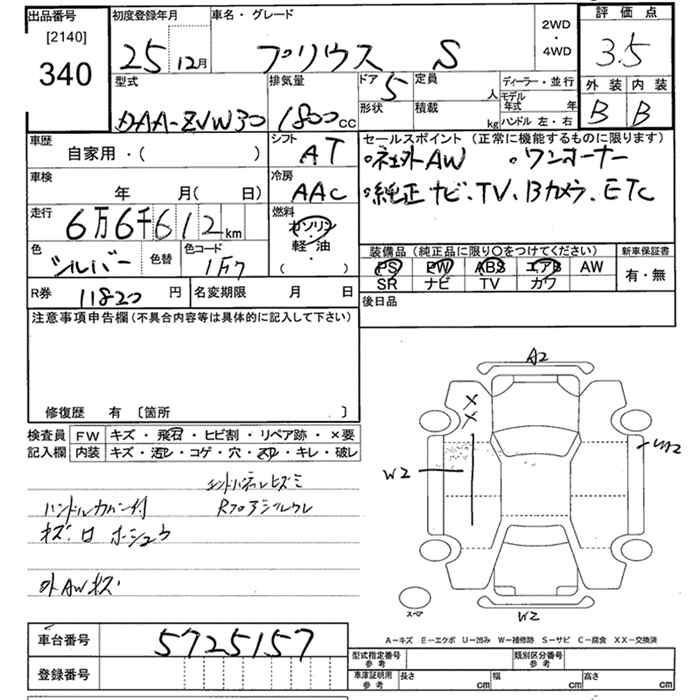 出品番号
[2140]
340
初度登録年月
25 12月
車名・グレード
プリウス S
2WD
・
4WD
評価点
3.5
外装 内装
B B
型式
DAA-ZVW30
排気量
1800 CC
ドア 5
形状
定員 人
積載 kg
ディーラー・並行
モデル年式 年
ハンドル 左・右
車歴
自家用・( )
シフト
AT
セールスポイント (正常に機能するものに限ります)
・社外AW ・ワンオーナー
・純正ナビ、TV、Bカメラ、ETC
車検
年 月( 日)
冷房
AAC
走行 6万6千612km
燃料
ガソリン
軽・油
( )
色
シルバー
色替
色コード
1F7
装備品 (純正品に限り〇をつけてください)
PS PW ABS エアB AW
SR ナビ TV カワ
新車保証書
有・無
R券 11820 円
名変期限 月 日
後日品
注意事項申告欄 (不具合内容等は具体的に記入して下さい)
修復歴 有 〔箇所 〕
検査員
記入欄
FW キズ・飛石・ヒビ割・リペア跡・×要
内装 キズ・汚レ・コゲ・穴・スレ・キレ・破レ
ハンドルカバー付
キズ
外AWキズ
A2
X
X
W2
W2
スペア
A-キズ E-エクボ U-凹み W-補修跡 S-サビ C-腐食 XX-交換済
車台番号 5725157
登録番号
型式指定番号
参考
類別区分番号
参考
車庫証明用
参考
長さ cm 幅 cm 高さ cm